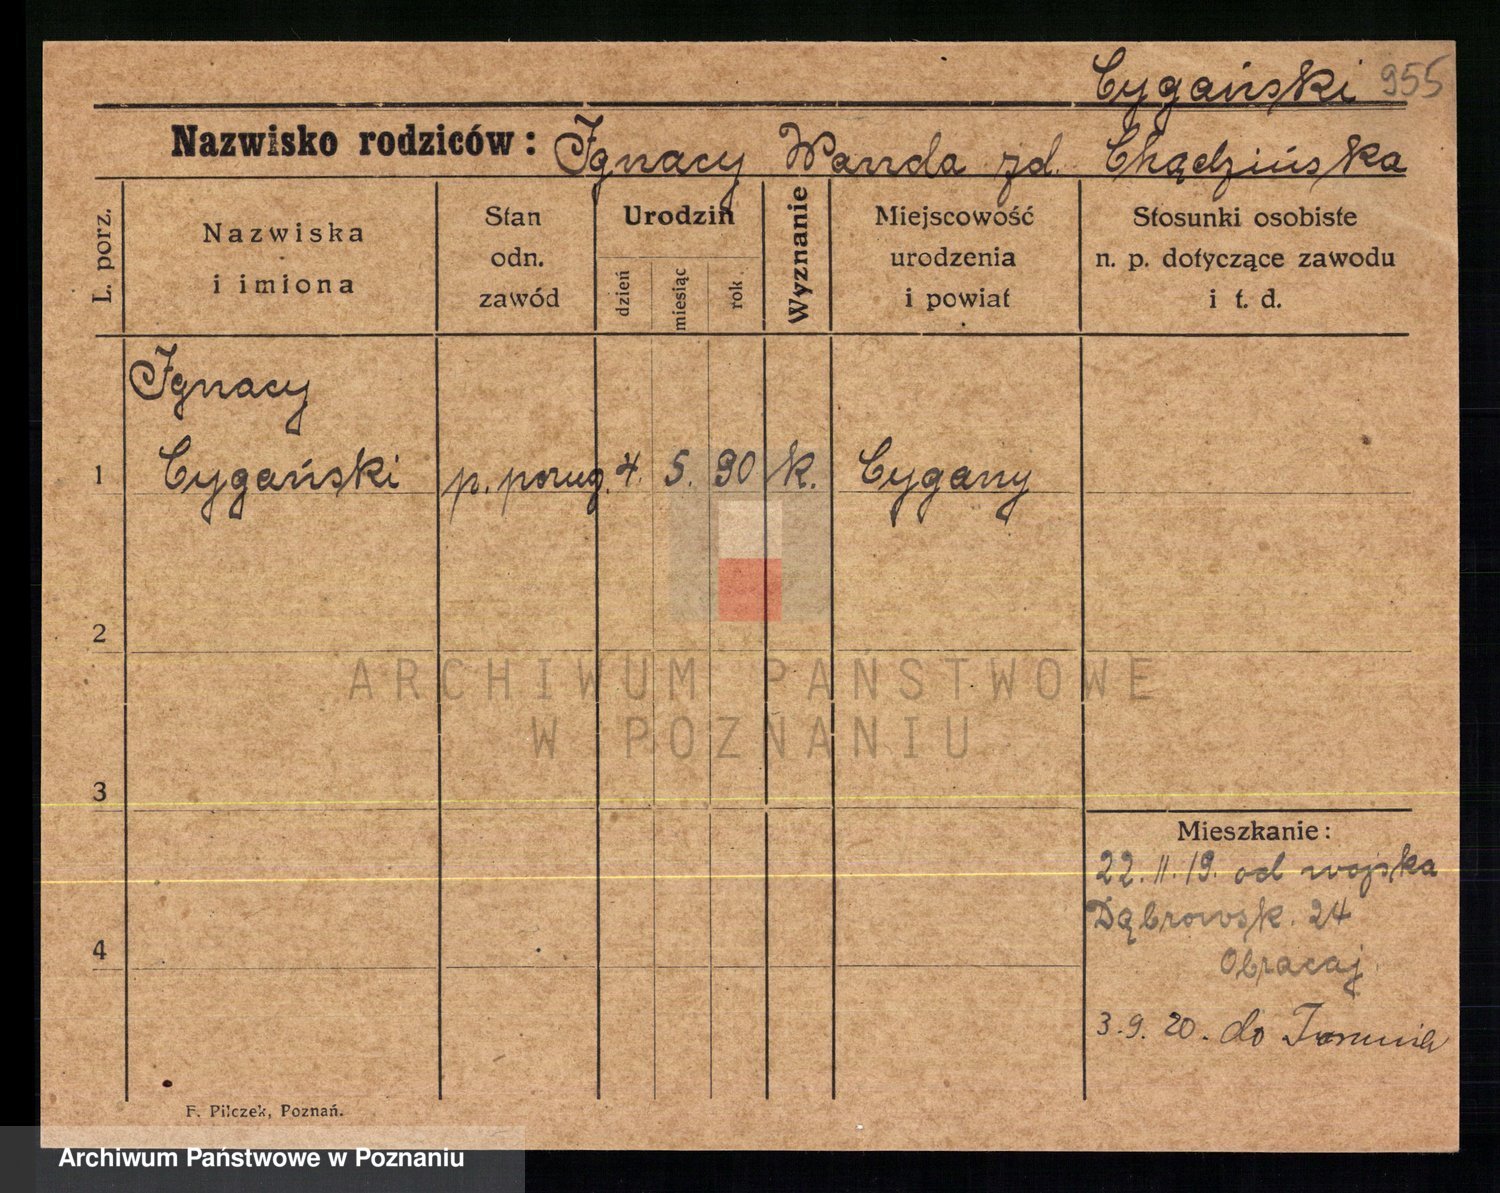 Cygański 955
Nazwisko rodziców: Ignacy Wanda zd. Chądzińska
L. porz.
Nazwiska
i imiona
Stan
odn.
zawód
Urodzin
dzień
miesiąc
rok
Wyznanie
Miejscowość
urodzenia
i powiat
Stosunki osobiste
n. p. dotyczące zawodu
i t. d.
Ignacy
1 Cygański p. porug. 4. 5. 90 k. Cygany
2
ARCHIWUM PAŃSTWOWE
W POZNANIU
3
Mieszkanie:
22. 11. 19. od wojska
Dąbrowsk. 24
Obracaj
4
3. 9. 20. do Torunia
F. Pilczek, Poznań.
Archiwum Państwowe w Poznaniu